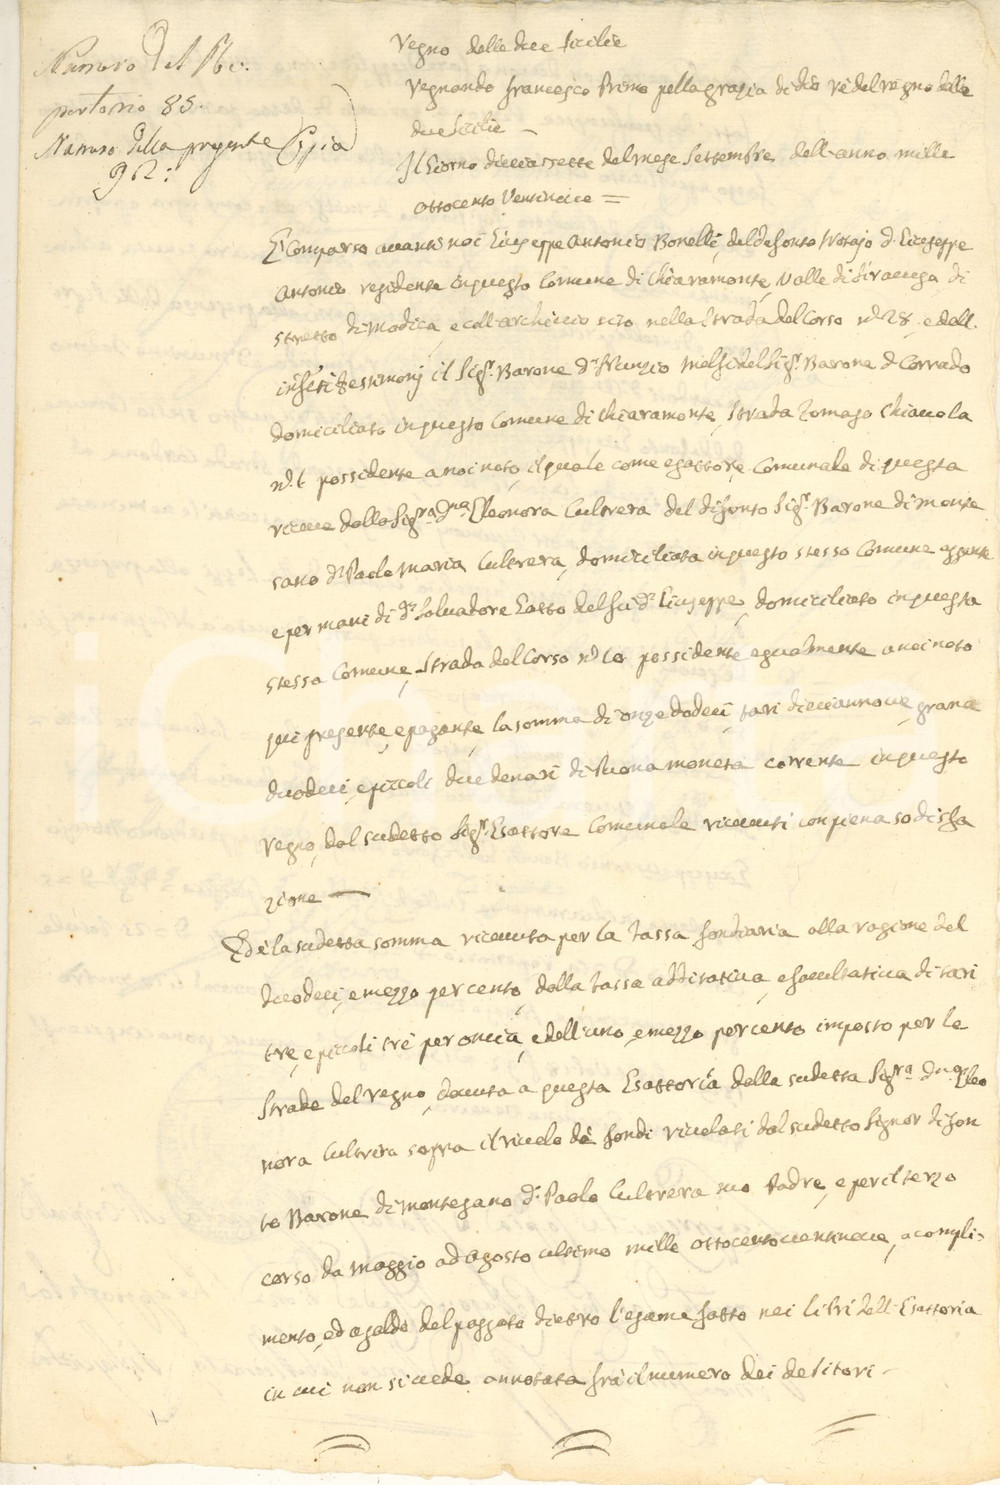 Numero del Re
pertorio 85.
Numero della presente Coppia
92:
Regno delle due Sicilie
Regnando Francesco Primo pella grazia di dio re del regno delle
due Sicilie
Il Giorno dieciassette del mese Settembre dell'anno mille
ottocento Ventinove =
È Comparso avanti noi Giuseppe Antonio Bonelli, del defonto Notajo D. Giuseppe
Antonio residente in questo Comune di Chiaramonte, Valle di Siracusa, di
stretto di Modica, e coll'archivio sito nella Strada del Corso n. 28. e dell'
infritti testimonj il Sigr. Barone D. Nunzio Melfi del Sigr. Barone D. Corrado
domiciliato in questo Comune di Chiaramonte, Strada Tomaso Chiavola
n. 6 possidente a noi noto, il quale come esattore Comunale di questa
riceve dalla Sigra. Dna. Eleonora Cultrera del difonto Sigr. Barone di Monte
sano D. Paolo Maria Cultrera, domiciliata in questo stesso Comune assente
e per mani di D. Salvadore Gatto del fu D. Giuseppe, domiciliato in questa
stessa Comune, Strada del Corso n. 10 possidente egualmente a noi noto
qui presente, e pagante, la somma di onze dodeci, tarì dieciannove, grana
duodeci, e piccoli due denari di buona moneta corrente in questo
Regno, dal sudetto Sigr. Esattore Comunale ricevuti con piena sodisfa
zione
Ed è la sudetta somma ricevuta per la tassa fondiaria alla ragione del
duodeci, e mezzo per cento, della tassa additativa, e facultativa di tarì
tre, e piccoli trè per oncia, e dell'uno, e mezzo per cento imposto per le
Strade del regno, dovuta a questa Esattoria dalla sudetta Sigra. Dna. Eleo
nora Cultrera sopra il rivelo dè fondi rivelati dal sudetto Signor difon
to Barone di Montesano D. Paolo Cultrera suo Padre, e per il terzo
corso da Maggio ad Agosto ultimo mille ottocentoventinove, a compli=
mento, ed a saldo del passato dietro l'esame fatto nei libri dell'Esattoria
in cui non si vede annotata frà il numero dei debitori